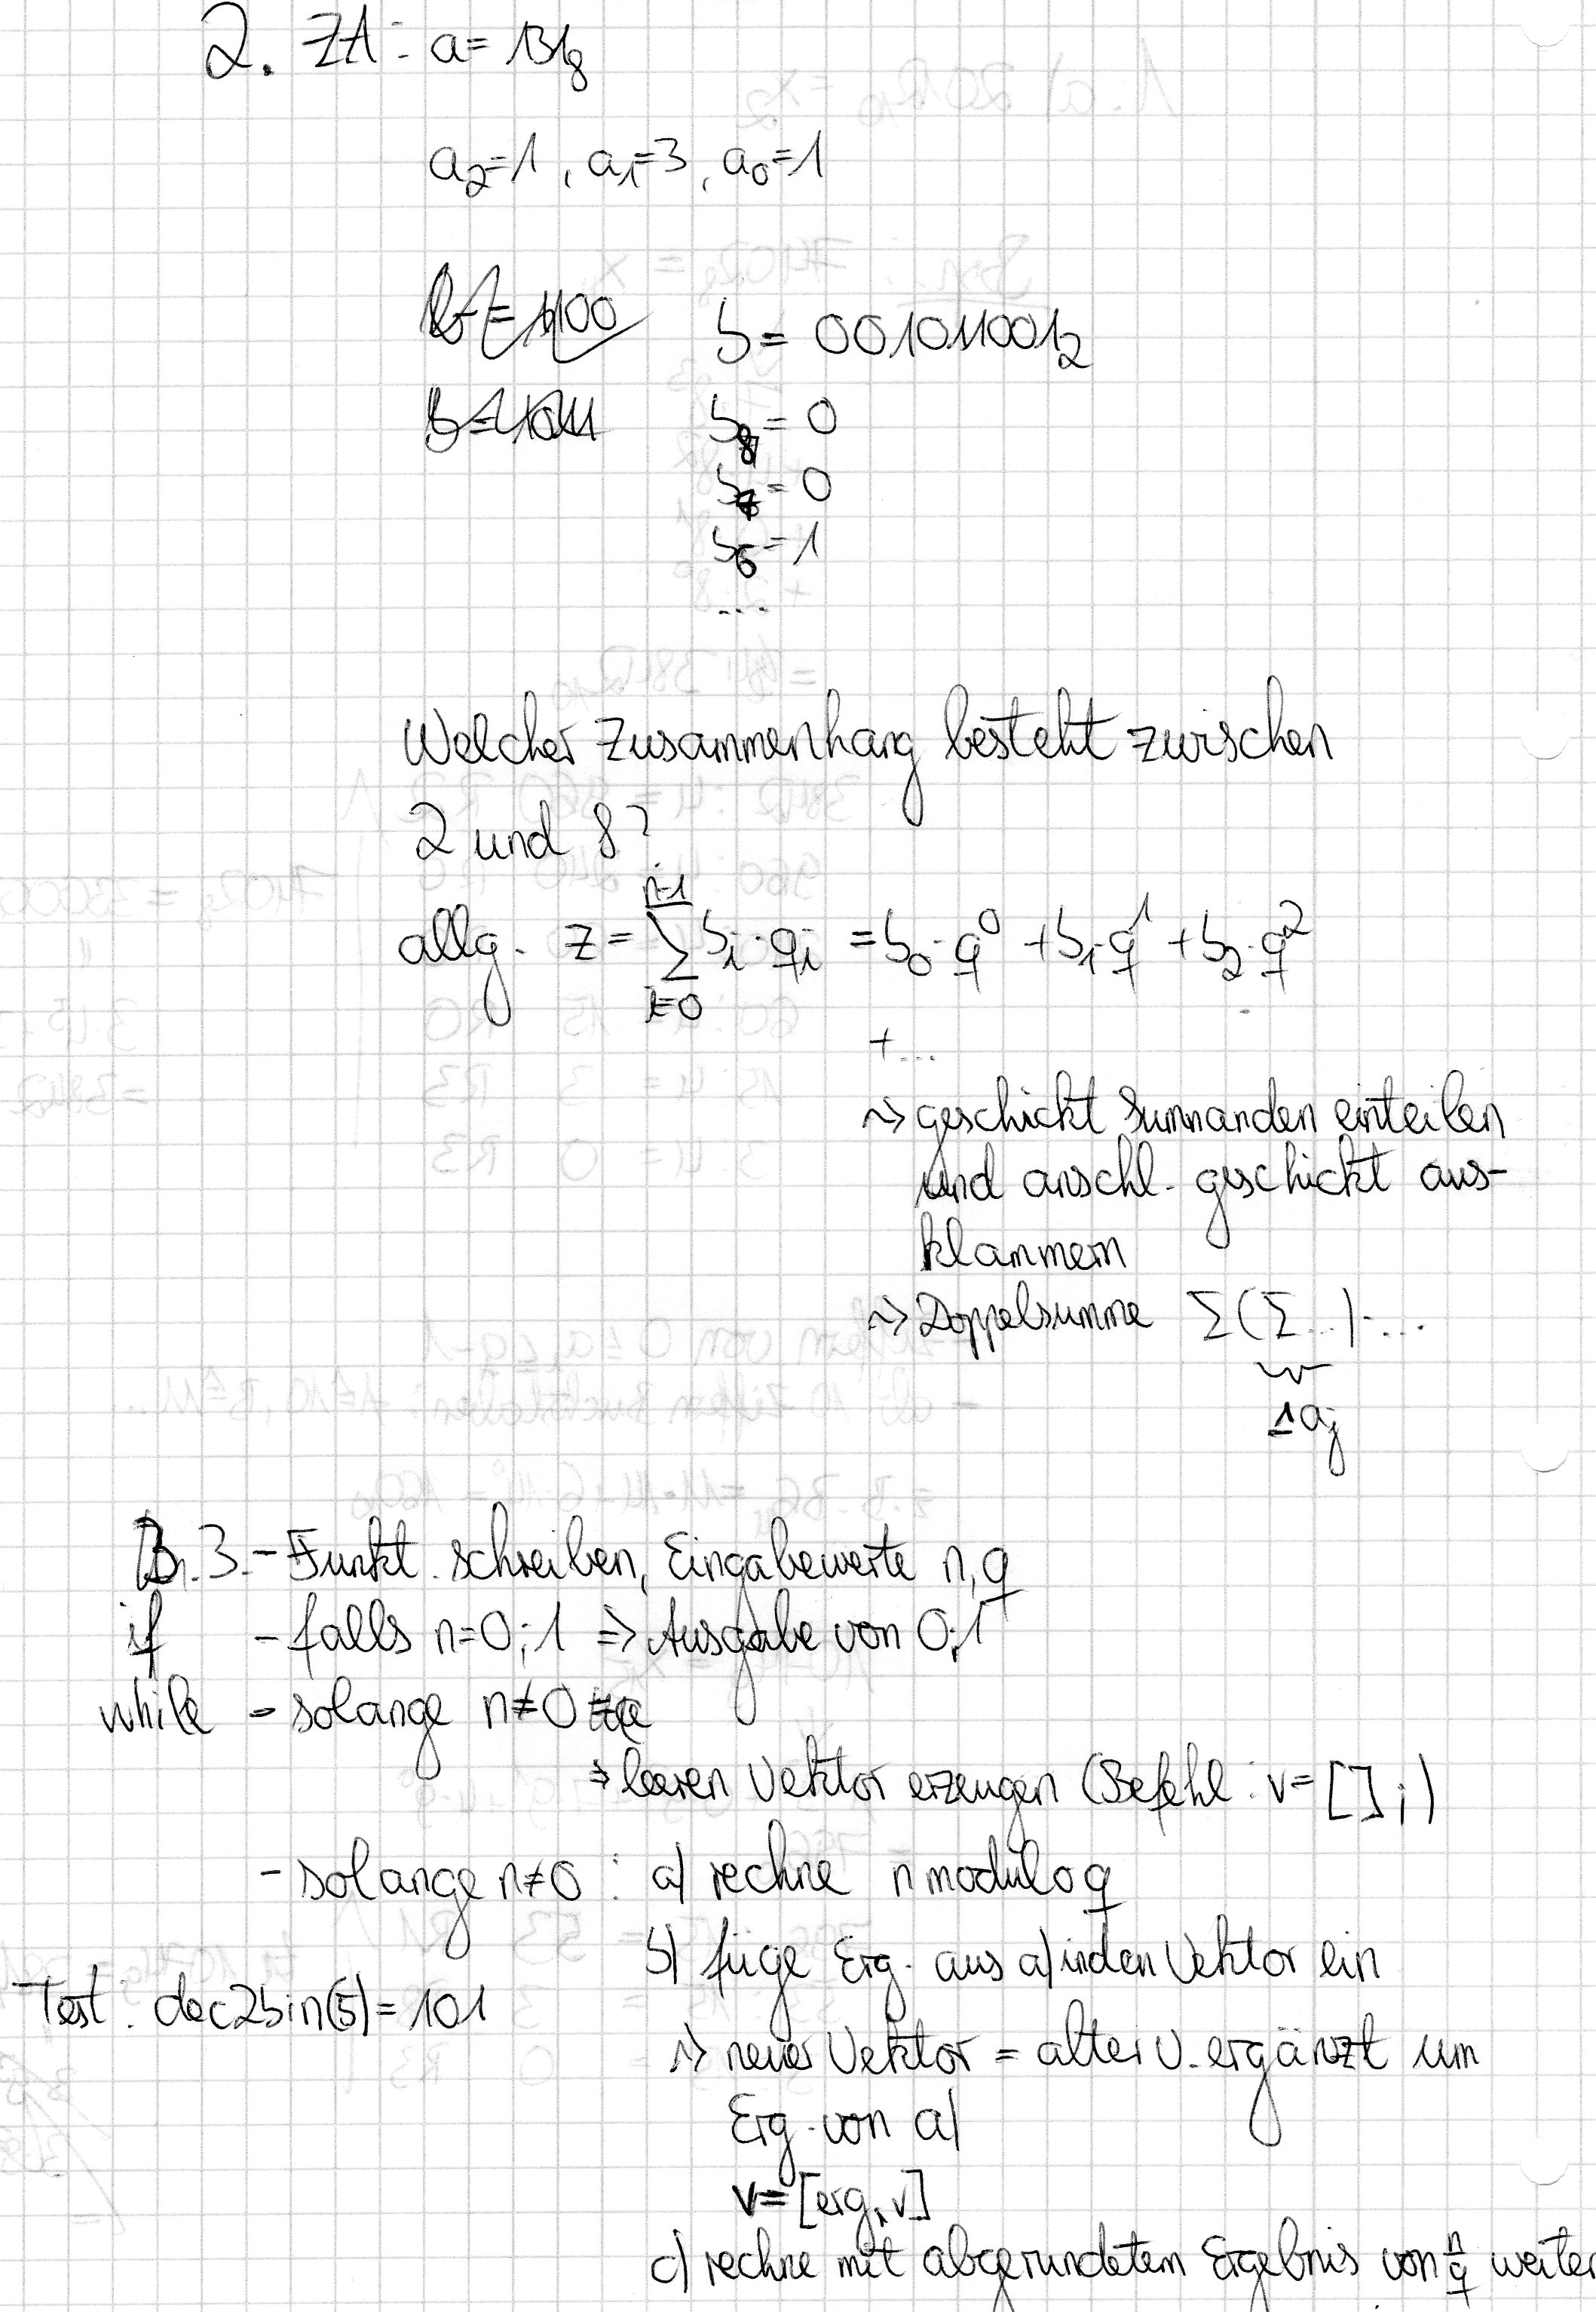 2. ZA: a = 131₈
a₂=1, a₁=3, a₀=1
b = 001011001₂
b₈ = 0
b₇ = 0
b₆ = 1
...
Welcher Zusammenhang besteht zwischen
2 und 8?
allg. z = ∑_{i=0}^{n-1} b_i · q^i = b₀·q⁰ + b₁·q¹ + b₂·q²
+...
~> geschickt Summanden einteilen
und anschl. geschickt aus-
klammern
~> Doppelsumme Σ(Σ...)·...
a_j
3. - Funkt. schreiben, Eingabewerte n, q
if - falls n=0;1 => Ausgabe von 0;1
while - solange n≠0
=> leeren Vektor erzeugen (Befehl: v=[];)
- solange n≠0 : a) rechne n modulo q
b) füge Erg. aus a) in den Vektor ein
Test: dec2bin(5)=101
~> neuer Vektor = alter V. ergänzt um
Erg. von a)
v=[erg, v]
c) rechne mit abgerundetem Ergebnis von n/q weiter